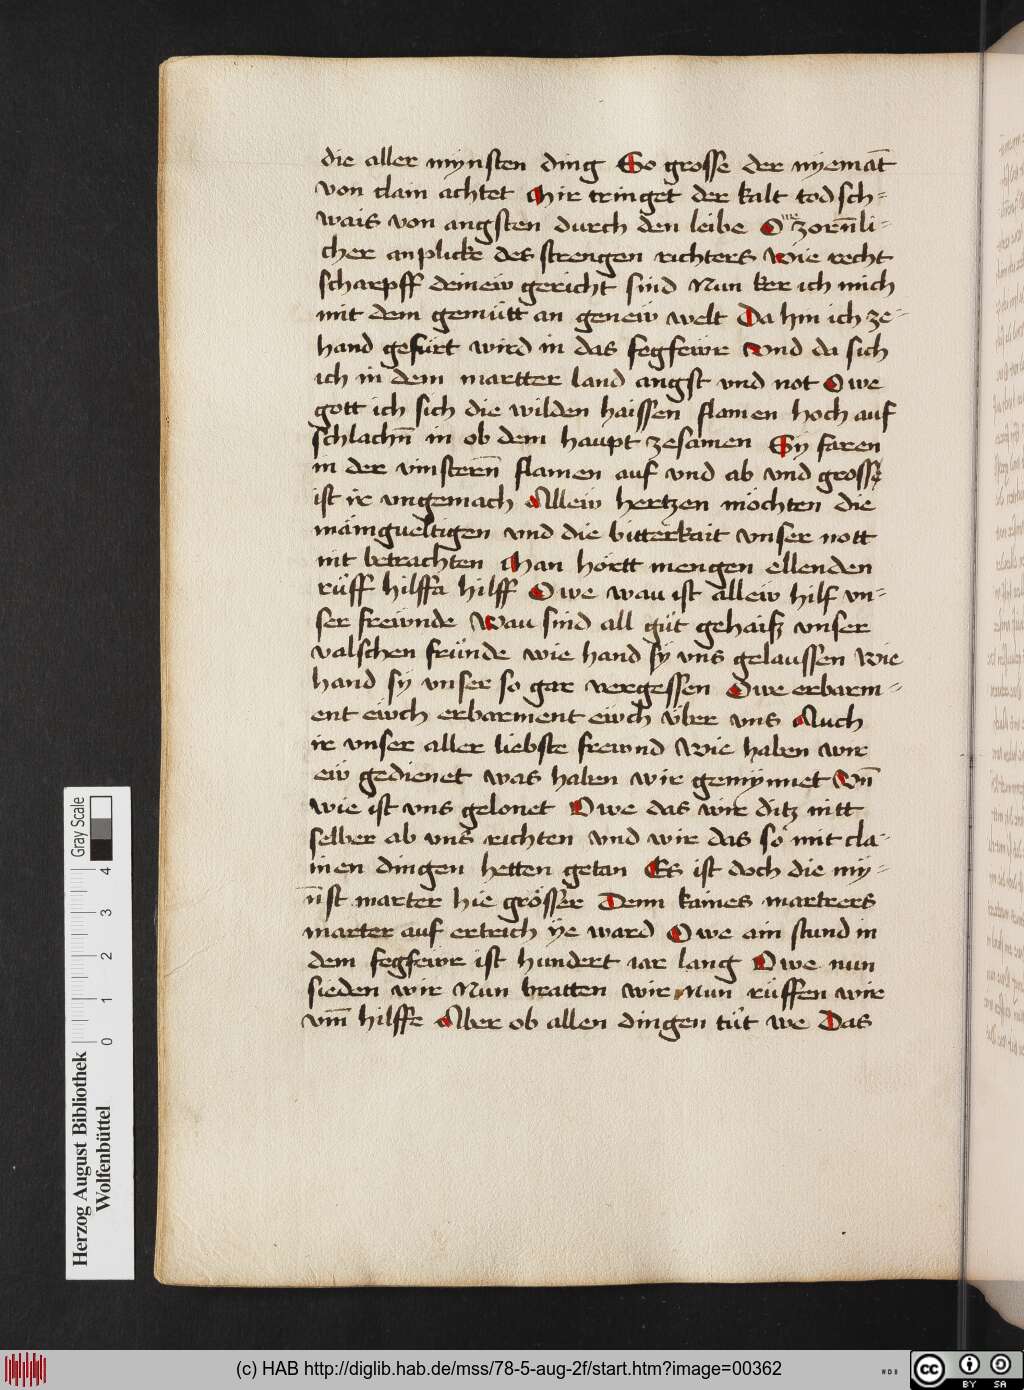 die aller mynsten ding So grosse der nyemāt
von clam achtet Mir tringet der kalt tod sch-
wais von angsten durch den leibe O we zorn̄li-
cher anplicke des strengen richters wie recht
scharpff deineẅ gericht sind Nun ker ich mich
mit dem gemütt an geneẅ welt Da hin ich ze-
hand gefürt wird in das fegfeẅr Vnd da sich
ich in dem martter land angst vnd not Owe
gott ich sich die wilden haissen flamen hoch auf
schlachn̄ in ob dem haupt zesamen Sy faren
in der vinstern̄ flamen auf vnd ab vnd grosse
ist ir vngemach Alleẅ hertzen möchten die
mämgueltigen vnd die bitterkait vnser nott
nit betrachten Man hörtt mengen ellenden
rüff hilffa hilff Owe wau ist alleẅ hilf vn-
ser freẅnde Wau sind all güt gehaiß vnser
valschen fründe wie hand sy vns gelaussen Wie
hand sy vnser so gar vergessen Owe erbarm-
ent eẅch erbarment eẅch über vns Auch
ir vnser aller liebste freẅnd Wie haben wir
eẅ gedienet was haben wir gemynnet Vn̄
wie ist vns gelonet Owe das wir ditz nitt
selber ab vns richten vnd wir das so mit cla-
inen dingen hetten getan Es ist doch die my-
n̄st marter hie grösser Denn kaines martrers
marter auf ertrich ye ward Owe ain stund in
dem fegfeẅr ist hundert iar lang Owe nun
sieden wir Nun bratten wir Nun rüffen wir
vm̄ hilffe Aber ob allen dingen tüt we Das
Gray Scale
4
3
2
1
0
Herzog August Bibliothek
Wolfenbüttel
(c) HAB http://diglib.hab.de/mss/78-5-aug-2f/start.htm?image=00362
WDB
cc
BY SA